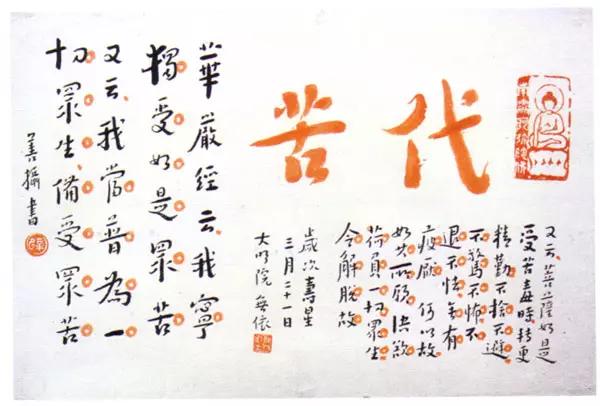 代苦
又云、菩薩如是
受苦毒時轉更
精勤不捨不避
不驚不怖不
退不怯無有
疲厭何以故
如其所願決欲
荷負一切眾生
令解脫故
歲次壽星
三月二十一日
大明院無依
華嚴經云我寧
獨受如是眾苦
又云我當普為一
切眾生備受眾苦
善攝書